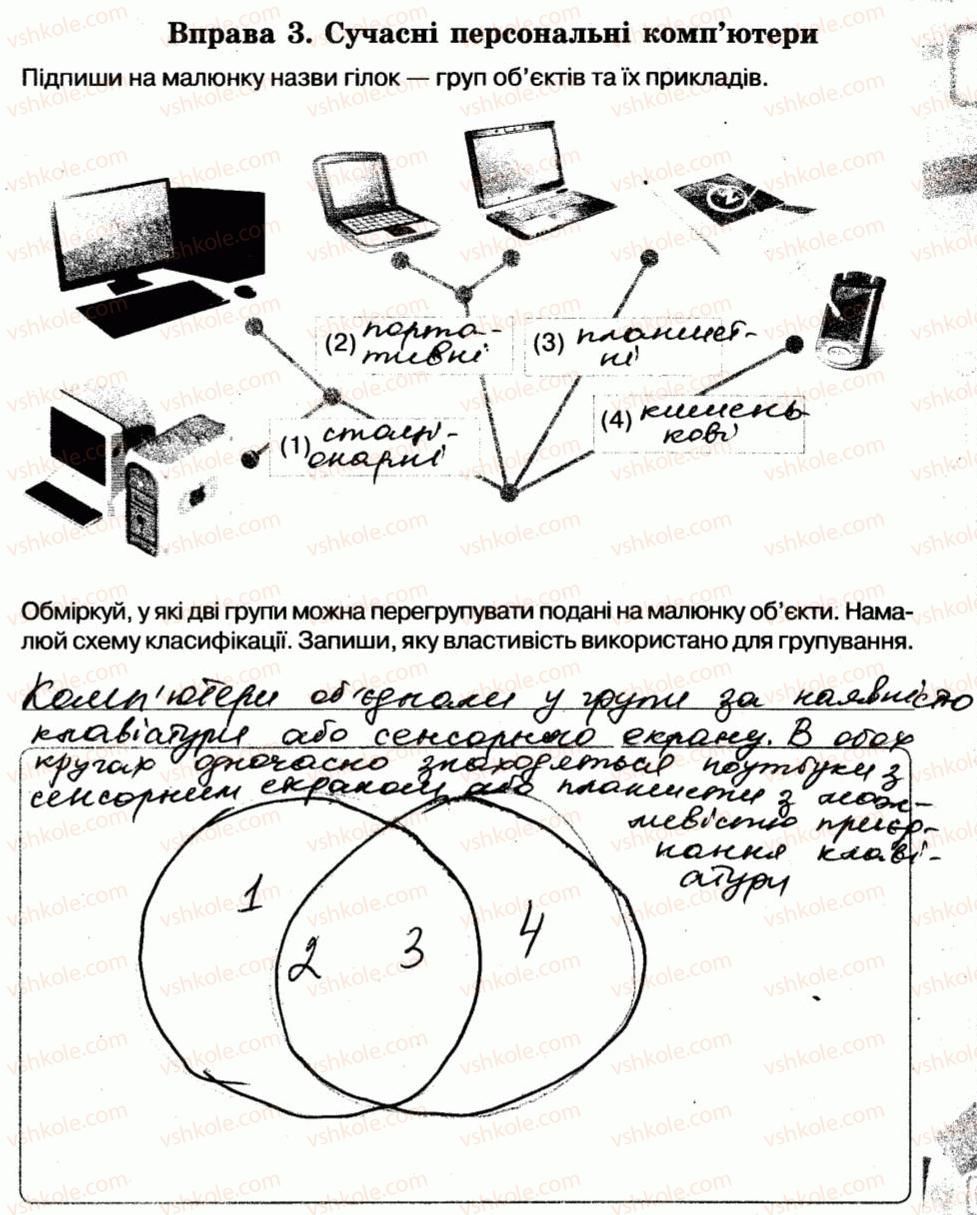 Вправа 3. Сучасні персональні комп’ютери
Підпиши на малюнку назви гілок — груп об’єктів та їх прикладів.
(2) порта-
тивні
(3) планшет-
ні
(4) кишень-
кові
(1) стаці-
онарні
Обміркуй, у які дві групи можна перегрупувати подані на малюнку об’єкти. Нама-
люй схему класифікації. Запиши, яку властивість використано для групування.
Комп'ютери об'єднали у групи за наявністю
клавіатури або сенсорного екрану. В обох
кругах одночасно знаходяться ноутбуки з
сенсорним екраном або планшети з мож-
ливістю приєд-
нання клаві-
атури
1
2
3
4
vshkole.com